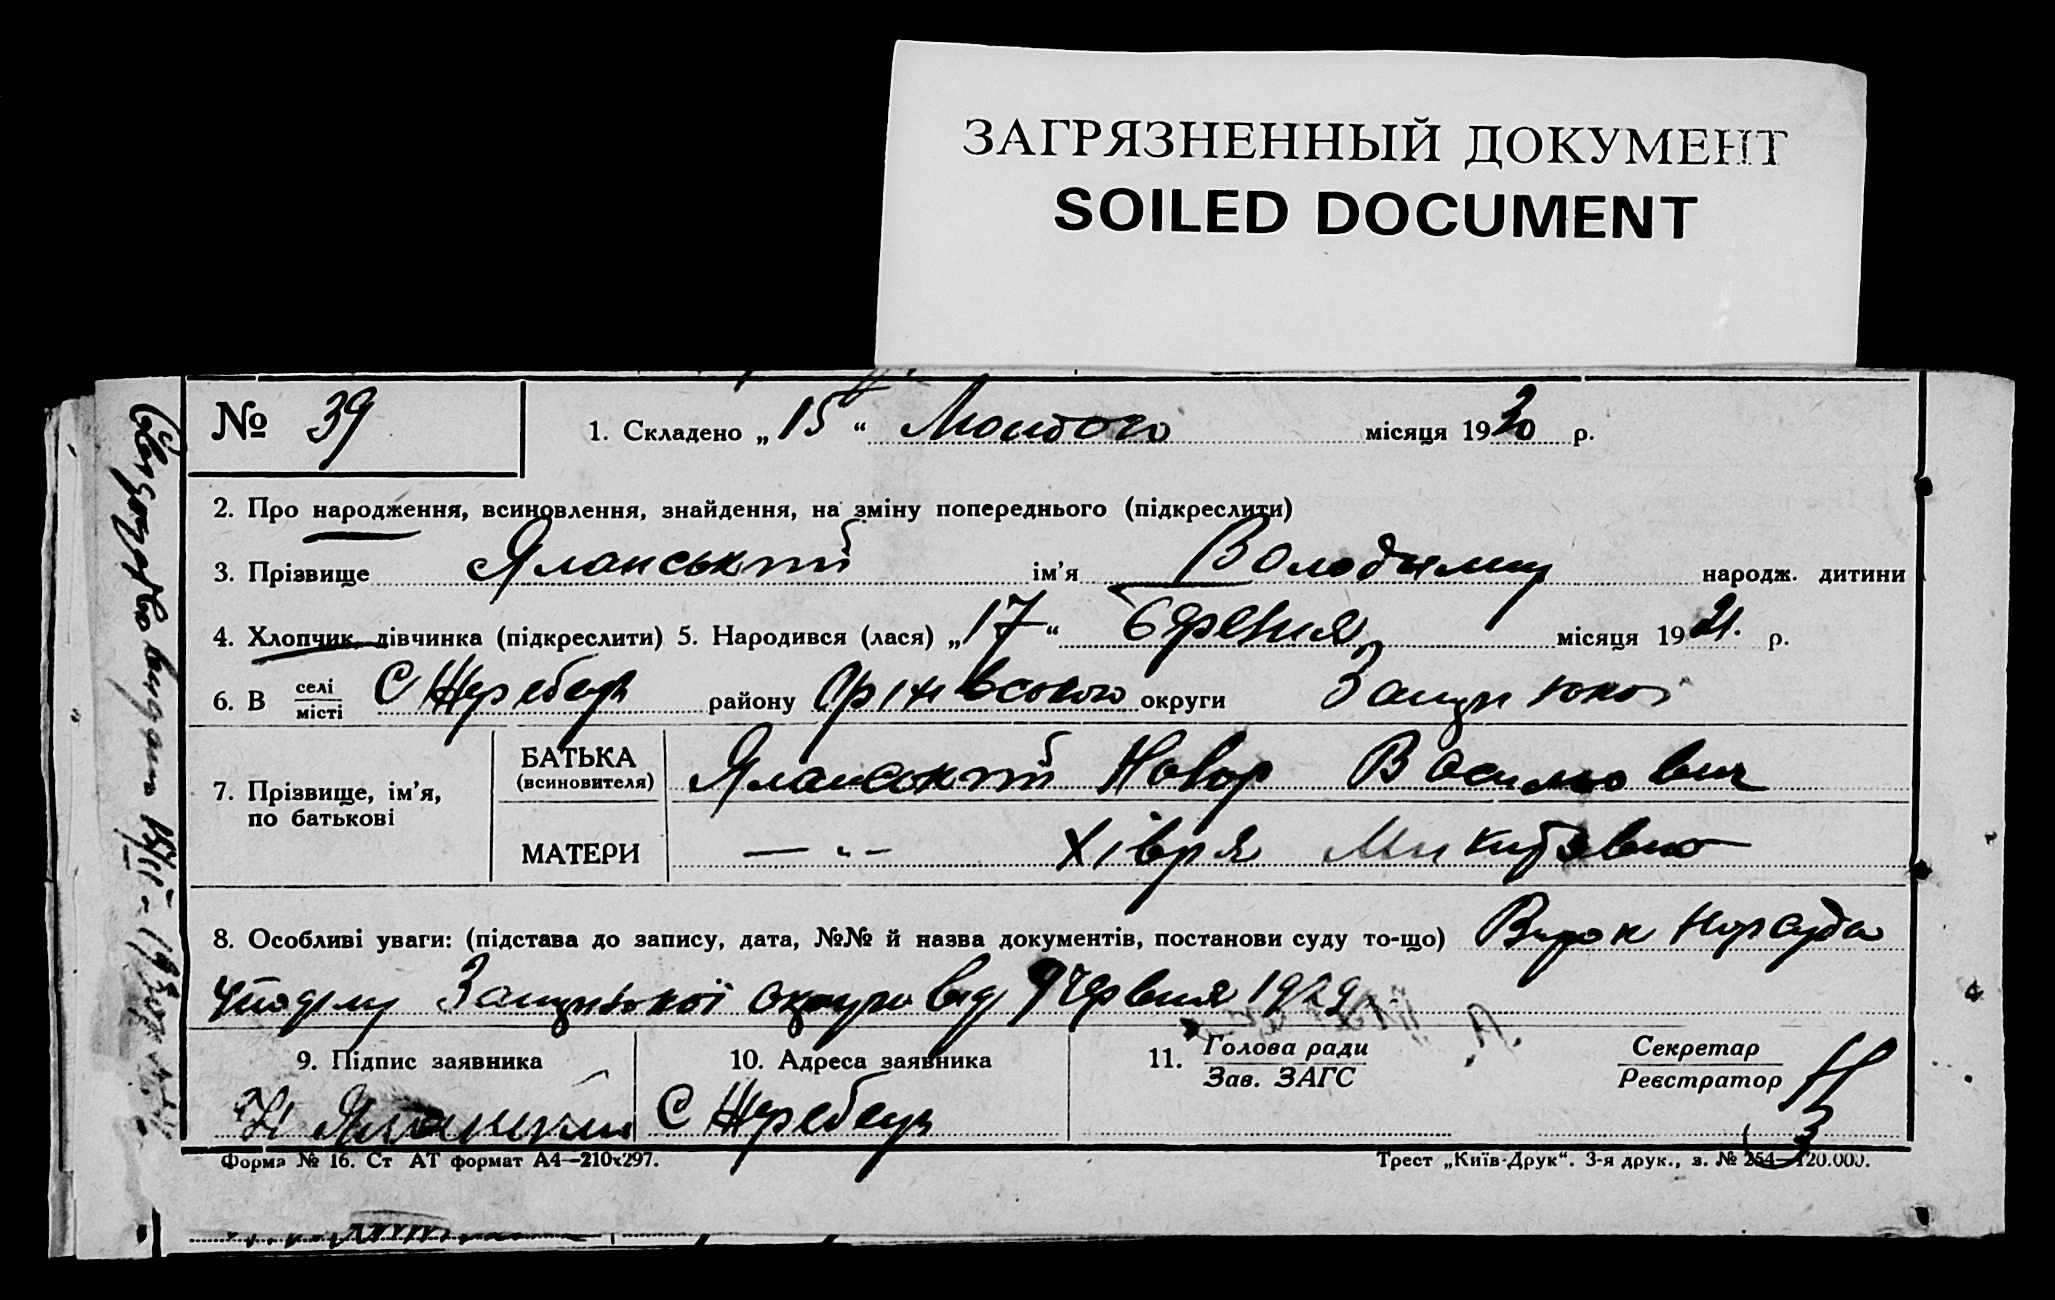 ЗАГРЯЗНЕННЫЙ ДОКУМЕНТ
SOILED DOCUMENT
№ 39
1. Складено „15“ Лютого місяця 1930 р.
2. Про народження, всиновлення, знайдення, на зміну попереднього (підкреслити)
3. Прізвище Яланський ім’я Володимир народж. дитини
4. Хлопчик, дівчинка (підкреслити) 5. Народився (лася) „17“ березня місяця 1921 р.
6. В селі місті С Жеребець району Оріхівського округи Запорізької
7. Прізвище, ім’я, по батькові
БАТЬКА (всиновителя) Яланський Назар Васильович
МАТЕРИ — „ — Хівря Микитовна
8. Особливі уваги: (підстава до запису, дата, №№ й назва документів, постанови суду то-що) Вирок Нарсуда
Запорізької округи від 9 червня 1929
9. Підпис заявника
10. Адреса заявника
11. Голова ради
Зав. ЗАГС
Секретар
Реєстратор
Н Яланський
С Жеребець
Форма № 16. Ст АТ формат А4—210х297.
Трест „Київ-Друк“. 3-я друк., з. № 254—120.000.